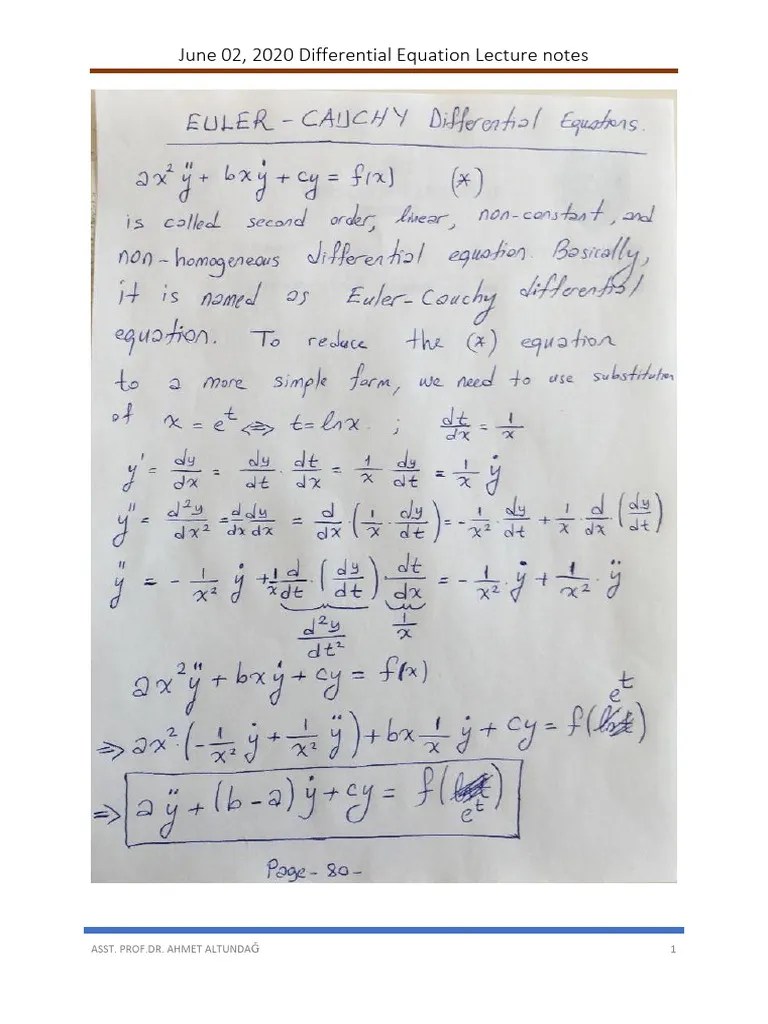 June 02, 2020 Differential Equation Lecture notes
EULER - CAUCHY Differential Equations.
ax² ÿ + bxẏ + cy = f(x) (*)
is called second order, linear, non-constant, and
non-homogeneous differential equation. Basically,
it is named as Euler-Cauchy differential
equation. To reduce the (*) equation
to a more simple form, we need to use substitution
of x = e^t <=> t = lnx. ; dt/dx = 1/x
y' = dy/dx = dy/dt · dt/dx = 1/x dy/dt = 1/x ẏ
y'' = d²y/dx² = d/dx dy/dx = d/dx · (1/x · dy/dt) = -1/x² · dy/dt + 1/x · d/dx (dy/dt)
ÿ = - 1/x² ẏ + 1/x d/dt · (dy/dt) · dt/dx = -1/x² · ẏ + 1/x² · ÿ
d²y/dt² 1/x
ax² ÿ + bxẏ + cy = f(x)
=> ax² · (-1/x² ẏ + 1/x² ÿ) + bx 1/x ẏ + cy = f(e^t)
=> aÿ + (b - a) ẏ + cy = f(e^t)
Page - 80 -
ASST. PROF.DR. AHMET ALTUNDAĞ 1